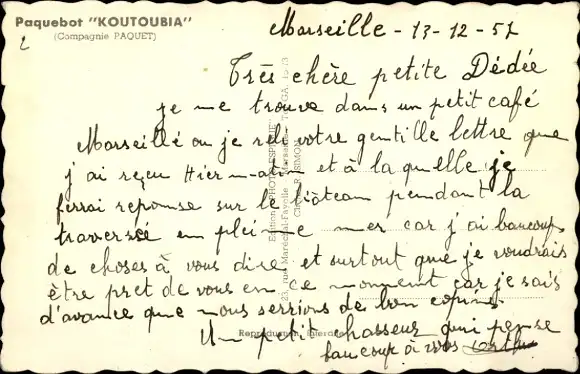 Paquebot "KOUTOUBIA"
(Compagnie PAQUET)
Marseille - 13-12-57
Très chère petite Dédée
je me trouve dans un petit café
Marseille ou je reli votre gentille lettre que
j'ai reçu Hier matin et à la quelle je
ferrai reponse sur le bâteau pendant la
traversée en pleine mer car j'ai baucoup
de choses à vous dire et surtout que je voudrais
être pret de vous en ce moment car je sais
d'avance que nous serrions de bon copins
Un petit chasseur qui pense
baucoup à vos
Edition
23, rue Maréchal-Fayolle, Marseille
Reproduction interdite